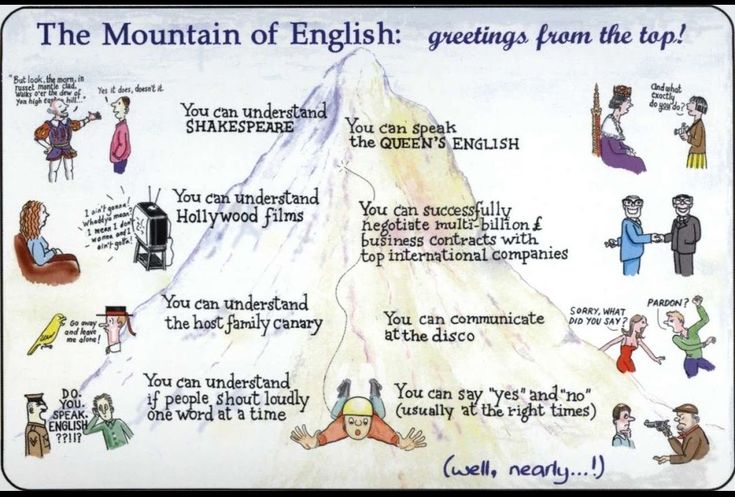 The Mountain of English: greetings from the top!
"But look, the morn, in
russet mantle clad,
Walks o'er the dew of
yon high eastern hill..."
Yes it does, doesn't it.
You can understand
SHAKESPEARE
You can speak
the QUEEN'S ENGLISH
And what
exactly
do you do?
I ain't gonna!
Whaddya mean?
I mean I don't
wanna and I
ain't gotta!
You can understand
Hollywood films
You can successfully
negotiate multi-billion £
business contracts with
top international companies
Go away
and leave
me alone!
You can understand
the host family canary
You can communicate
at the disco
SORRY, WHAT
DID YOU SAY?
PARDON?
DO.
YOU.
SPEAK.
ENGLISH
??!!?
You can understand
if people shout loudly
one word at a time
You can say "yes" and "no"
(usually at the right times)
(well, nearly...!)